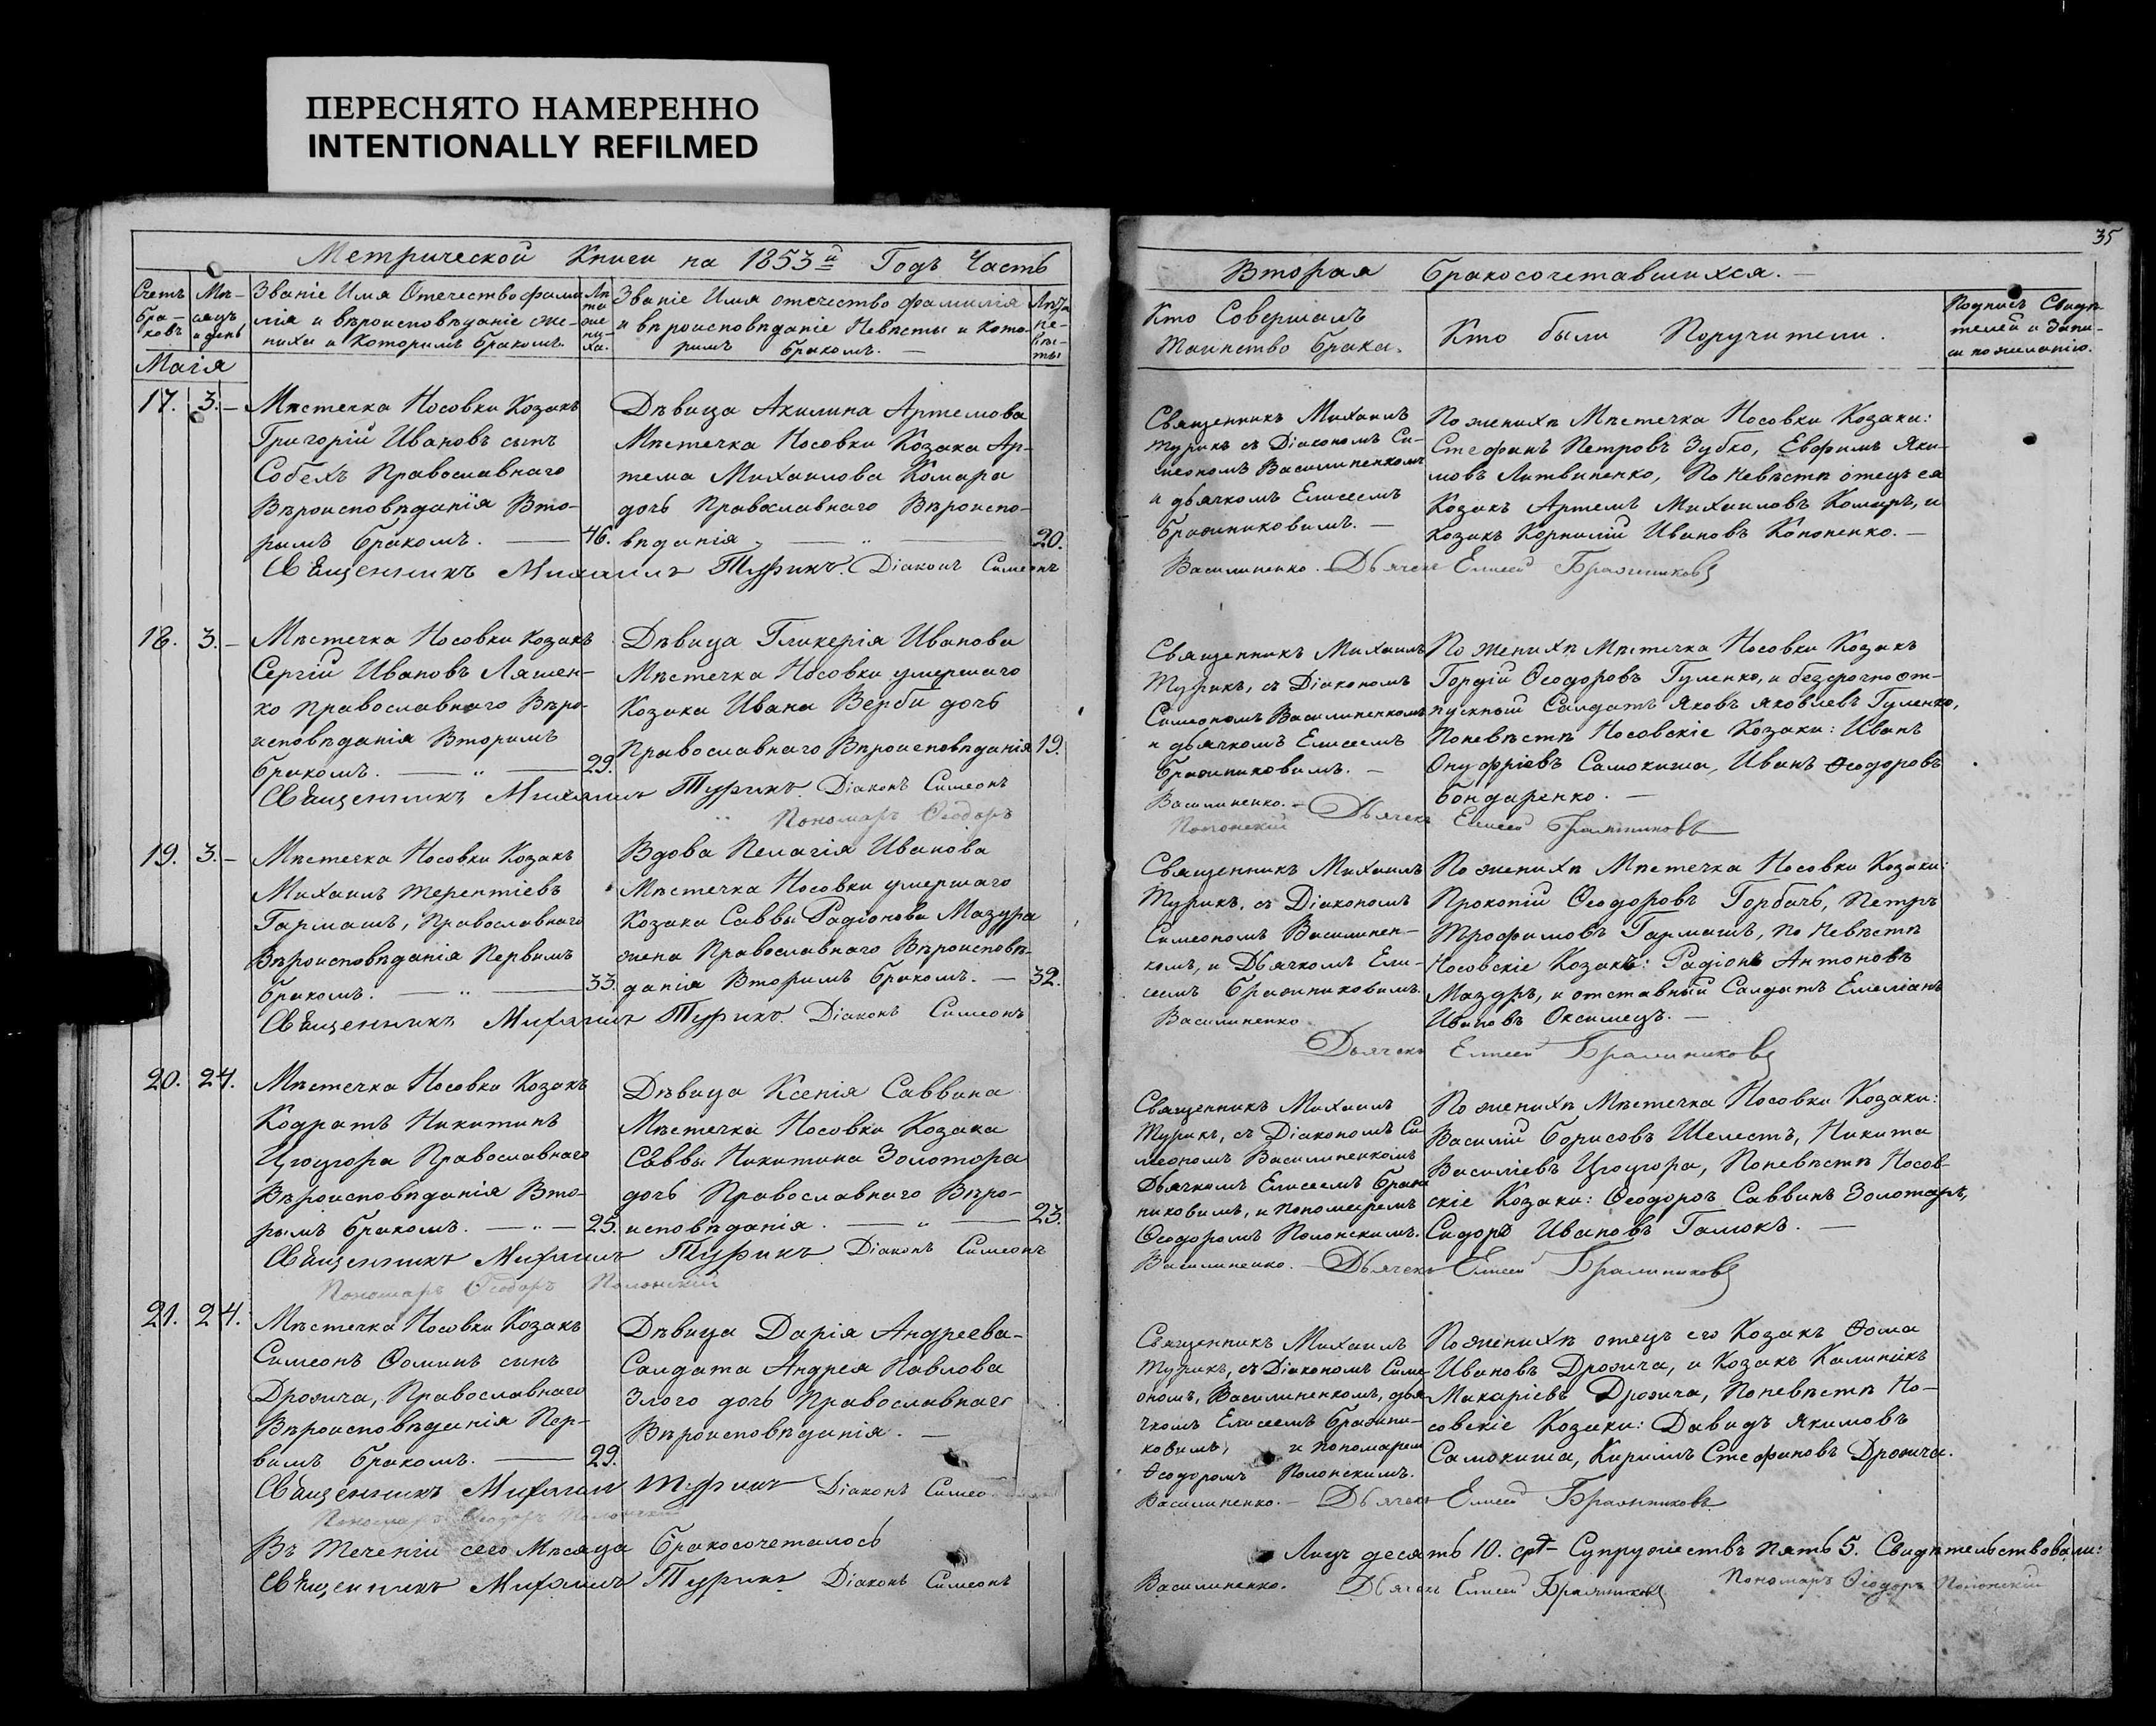 ПЕРЕСНЯТО НАМЕРЕННО
INTENTIONALLY REFILMED
Метрической Книги на 1853й Годъ Часть
Счетъ браковъ
Мѣсяцъ и день
Званіе Имя Отечество фамилія и вѣроисповѣданіе жениха и которимъ бракомъ.
Лѣта жениха.
Званіе Имя отечество фамилія и вѣроисповѣданіе Невѣсты и которимъ бракомъ. —
Лѣта невѣсты
Маія
17. 3. — Мѣстечка Носовки Козакъ
Григорій Ивановъ сынъ
Собехъ Православнаго
Вѣроисповѣданія Вто-
рымъ бракомъ. — 46.
Дѣвица Акилина Артемова
Мѣстечка Носовки Козака Ар-
тема Михаилова Комара
дочь Православнаго Вѣроиспо-
вѣданія — 20.
Священникъ Михаилъ Турикъ. Діаконъ Симеонъ
18. 3. — Мѣстечка Носовки Козакъ
Сергій Ивановъ Ляшен-
ко православнаго Вѣро-
исповѣданія Вторимъ
бракомъ. — 29.
Дѣвица Гликерія Иванова
Мѣстечка Носовки умершаго
Козака Ивана Верби дочь
Православнаго Вѣроисповѣданія 19.
Священникъ Михаилъ Турикъ. Діаконъ Симеонъ
Пономарь Ѳеодоръ
19. 3. — Мѣстечка Носовки Козакъ
Михаилъ Терентіевъ
Гармашъ, Православнаго
Вѣроисповѣданія Первимъ
бракомъ. — 33.
Вдова Пелагія Иванова
Мѣстечка Носовки умершаго
Козака Саввы Радіонова Мазура
жена Православнаго Вѣроисповѣ-
данія Вторимъ бракомъ. — 32.
Священникъ Михаилъ Турикъ. Діаконъ Симеонъ
20. 24. Мѣстечка Носовки Козакъ
Кодратъ Никитинъ
Цюцюра Православнаго
Вѣроисповѣданія Вто-
рымъ бракомъ. — 25.
Дѣвица Ксенія Саввина
Мѣстечка Носовки Козака
Саввы Никитина Золотора
дочь Православнаго Вѣро-
исповѣданія. — 23.
Священникъ Михаилъ Турикъ Діаконъ Симеонъ
Пономарь Ѳеодоръ Полонскій
21. 24. Мѣстечка Носовки Козакъ
Симеонъ Ѳоминъ сынъ
Дрожича, Православнаго
Вѣроисповѣданія Пер-
вимъ бракомъ. — 29.
Дѣвица Дарія Андреева-
Солдата Андрея Павлова
Злого дочь Православнаго
Вѣроисповѣданія. —
Священникъ Михаилъ Турикъ Діаконъ Симео
Пономарь Ѳеодоръ Полонскій
Въ теченіи сего Мѣсяца бракосочеталось
Священникъ Михаилъ Турикъ Діаконъ Симеонъ
35
Вторая бракосочетавшихся. —
Кто Совершалъ Таинство брака.
Кто были Поручители.
Подпись Свидѣтелей и Записи по желанію.
Священникъ Михаилъ
Турикъ съ Діакономъ Си-
меономъ Василиненкомъ
и дьячкомъ Елисеемъ
Бражниковимъ. —
По женихѣ Мѣстечка Носовки Козаки:
Стефанъ Петровъ Зубко, Евфимъ Яки-
мовъ Литвиненко, По Невѣстѣ отецъ ея
Козакъ Артемъ Михаиловъ Комаръ, и
козакъ Корнилій Ивановъ Кононенко. —
Василиненко. — Дьячекъ Елисей Бражниковъ
Священникъ Михаилъ
Турикъ, съ Діакономъ
Симеономъ Василиненкомъ
и дьячкомъ Елисеемъ
Бражниковимъ. —
По Женихѣ Мѣстечка Носовки Козакъ
Гордій Ѳеодоровъ Гуленко, и безсрочноот-
пускный Солдатъ Яковъ Яковлевъ Гуленко,
Поневѣстѣ Носовскіе Козаки: Иванъ
Онуфріевъ Самокиша, Иванъ Ѳеодоровъ
Бондаренко. —
Василиненко. — Дьячекъ Елисей Бражниковъ
Полонскій
Священникъ Михаилъ
Турикъ, съ Діакономъ
Симеономъ Василинен-
комъ, и Дьячкомъ Ели-
сеемъ Бражниковимъ.
По женихѣ Мѣстечка Носовки Козаки:
Прокопій Ѳеодоровъ Горбачъ, Петръ
Трофимовъ Гармашъ, по Невѣстѣ
Носовскіе Козакъ: Радіонъ Антоновъ
Мазуръ, и отставный Солдатъ Емеліанъ
Ивановъ Оксимецъ. —
Василиненко
Дьячекъ Елисей Бражниковъ
Священникъ Михаилъ
Турикъ, съ Діакономъ Си
меономъ Василиненкомъ
Дьячкомъ Елисеемъ Браж
никовимъ, и Пономаремъ
Ѳеодоромъ Полонскимъ.
По женихѣ Мѣстечка Носовки Козаки:
Василій Борисовъ Шелестъ, Никита
Василіевъ Цюцюра, Поневѣстѣ Носов-
скіе Козаки: Ѳеодоръ Саввинъ Золотарь,
Сидоръ Ивановъ Галюкъ. —
Василиненко. — Дьячекъ Елисей Бражниковъ
Священникъ Михаилъ
Турикъ, съ Діакономъ Симе-
ономъ, Василиненкомъ, дья
чкомъ Елисеемъ Бражни-
ковимъ, и пономарем
Ѳеодоромъ Полонскимъ.
По женихѣ отецъ его Козакъ Ѳома
Ивановъ Дрожича, и Козакъ Калиникъ
Макаріевъ Дрожича, Поневѣстѣ Но-
совскіе Козаки: Давидъ Якимовъ
Самокиша, Кириллъ Стефановъ Дрожича.
Василиненко. — Дьячекъ Елисей Бражниковъ
Лицъ десять 10. Супружествъ пять 5. Свидѣтельствовали:
Василиненко. Дьячекъ Елисей Бражниковъ Пономарь Ѳеодоръ Полонскій